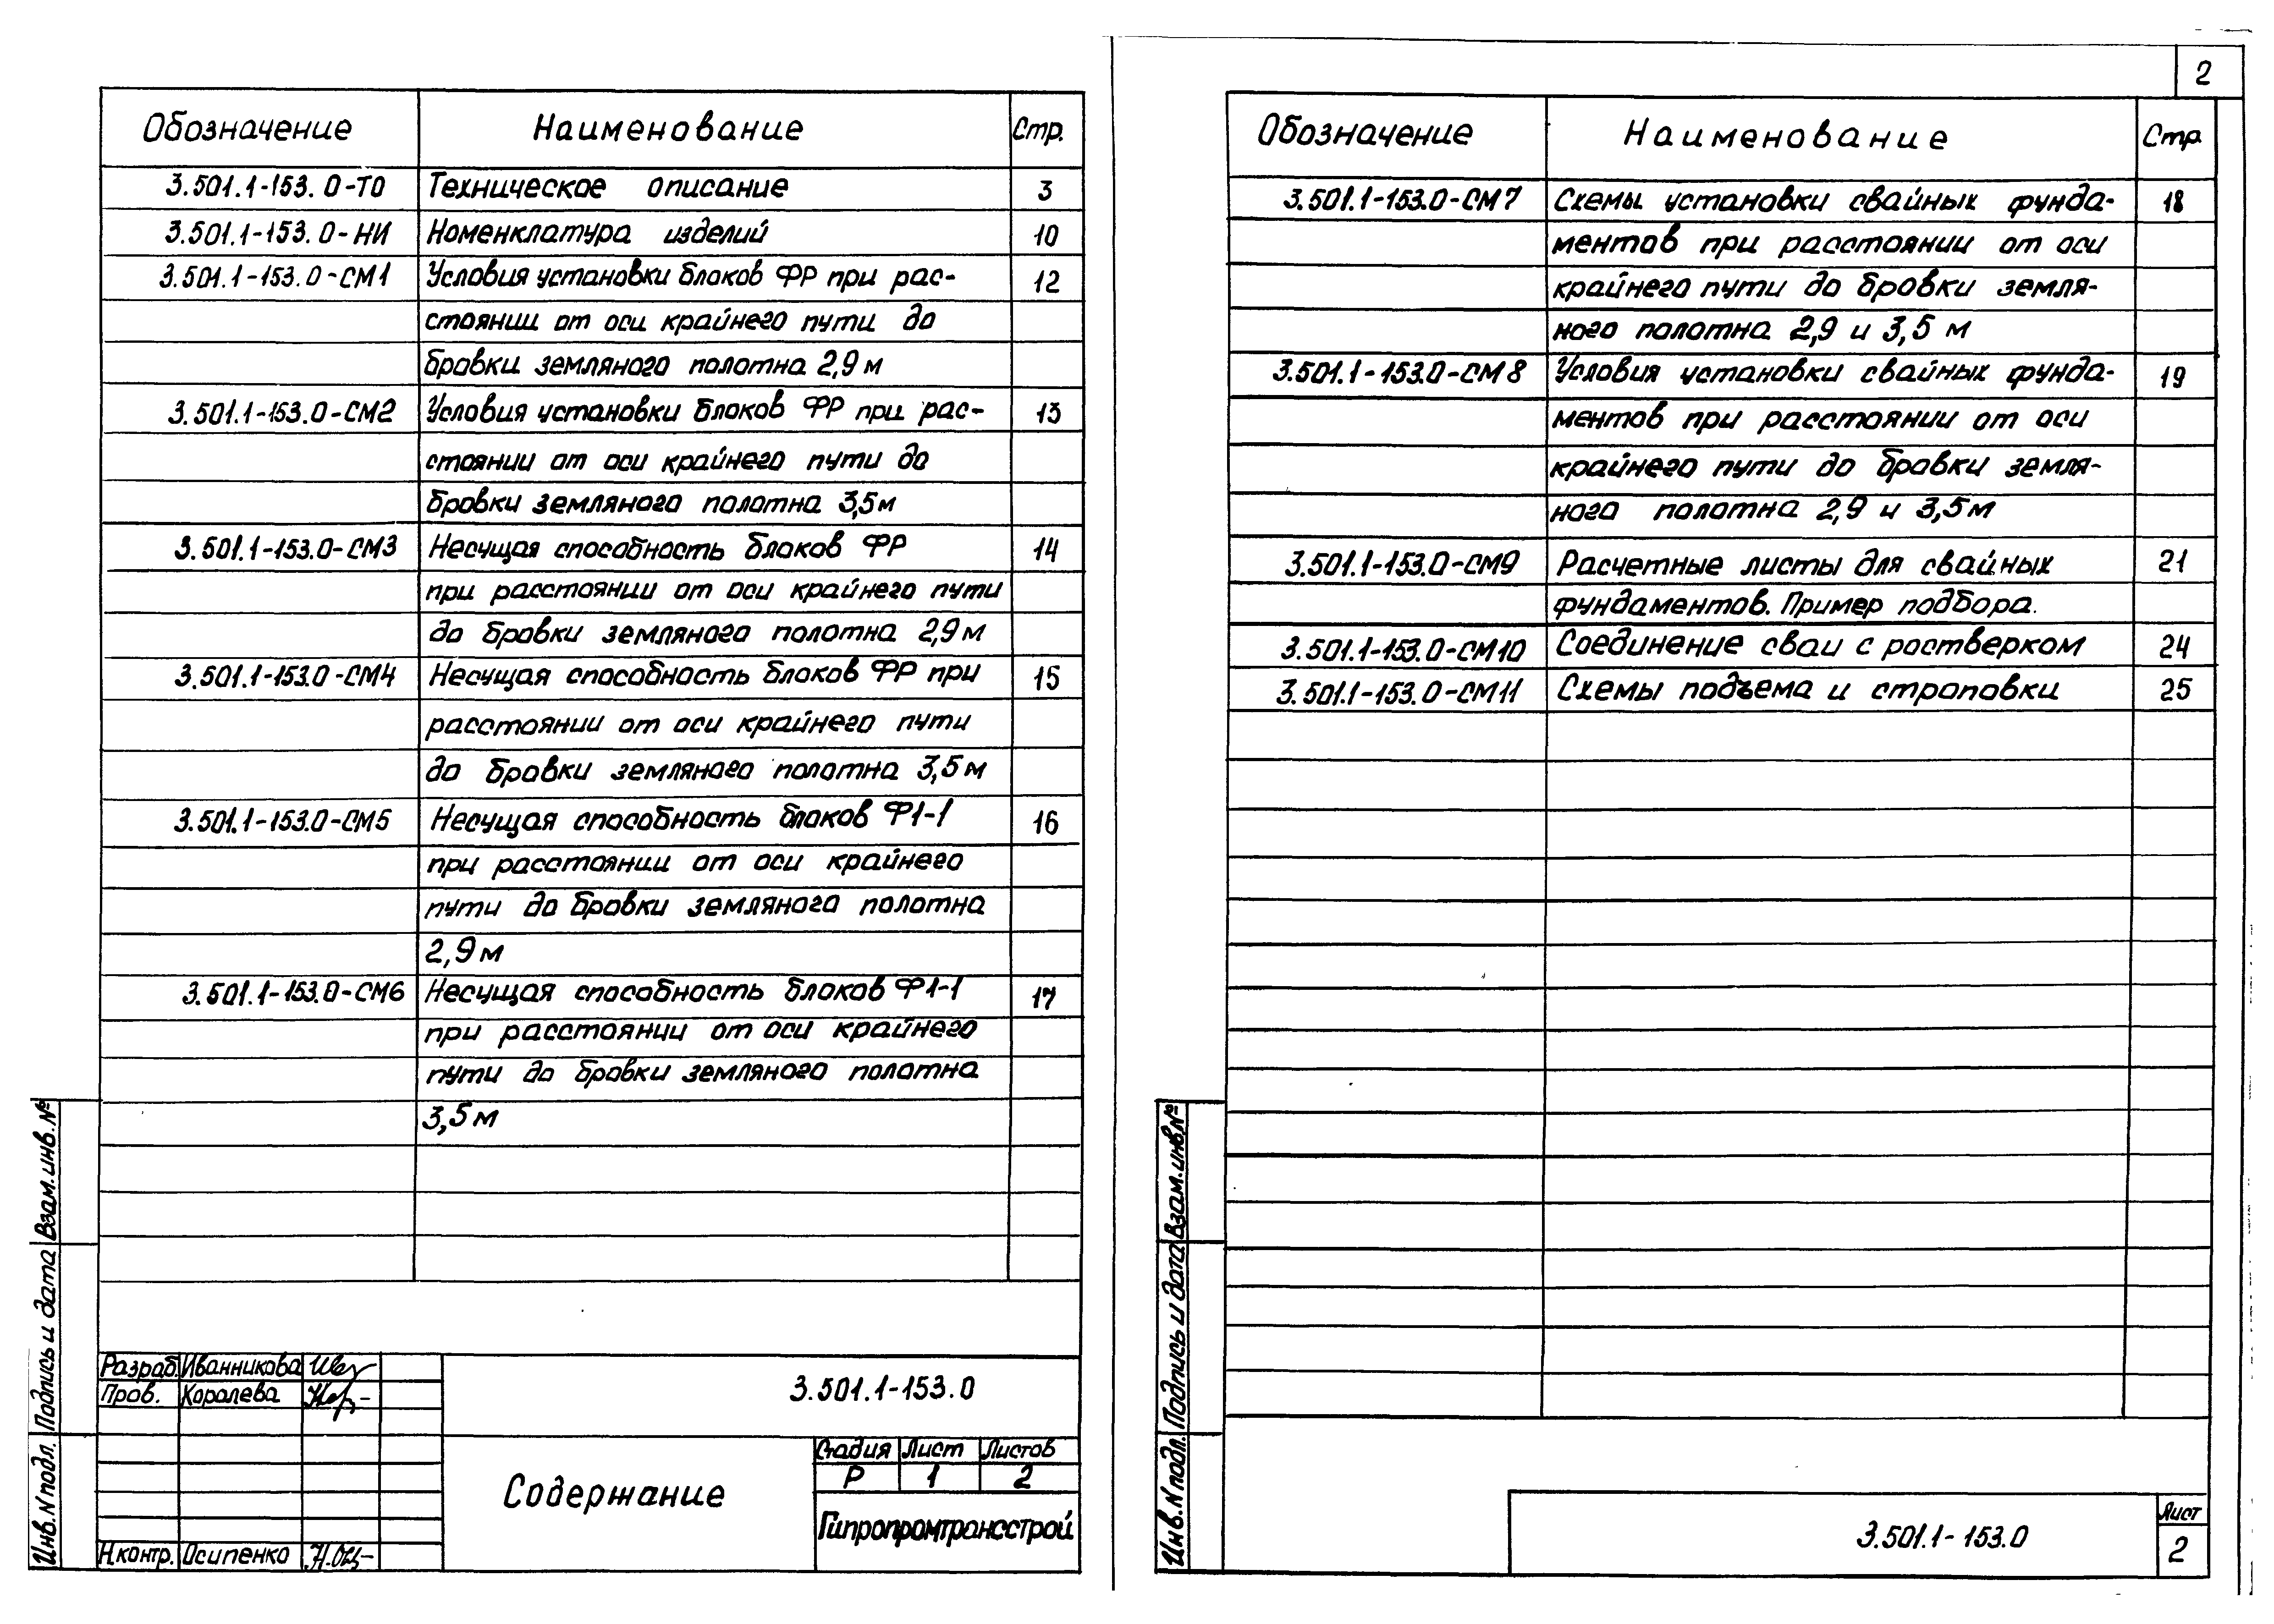 Обозначение Наименование Стр.
3.501.1-153.0-ТО Техническое описание 3
3.501.1-153.0-НИ Номенклатура изделий 10
3.501.1-153.0-СМ1 Условия установки блоков ФР при рас- 12
стоянии от оси крайнего пути до
бровки земляного полотна 2,9 м
3.501.1-153.0-СМ2 Условия установки блоков ФР при рас- 13
стоянии от оси крайнего пути до
бровки земляного полотна 3,5 м
3.501.1-153.0-СМ3 Несущая способность блоков ФР 14
при расстоянии от оси крайнего пути
до бровки земляного полотна 2,9 м
3.501.1-153.0-СМ4 Несущая способность блоков ФР при 15
расстоянии от оси крайнего пути
до бровки земляного полотна 3,5 м
3.501.1-153.0-СМ5 Несущая способность блоков Ф1-1 16
при расстоянии от оси крайнего
пути до бровки земляного полотна
2,9 м
3.501.1-153.0-СМ6 Несущая способность блоков Ф1-1 17
при расстоянии от оси крайнего
пути до бровки земляного полотна
3,5 м
Взам. инв. №
Подпись и дата
Инв. N подл.
Разраб. Иванникова
Пров. Королева
Н.контр. Осипенко
3.501.1-153.0
Содержание
Стадия Лист Листов
Р 1 2
Гипропромтрансстрой
2
Обозначение Наименование Стр
3.501.1-153.0-СМ7 Схемы установки свайных фунда- 18
ментов при расстоянии от оси
крайнего пути до бровки земля-
ного полотна 2,9 и 3,5 м
3.501.1-153.0-СМ8 Условия установки свайных фунда- 19
ментов при расстоянии от оси
крайнего пути до бровки земля-
ного полотна 2,9 и 3,5 м
3.501.1-153.0-СМ9 Расчетные листы для свайных 21
фундаментов. Пример подбора.
3.501.1-153.0-СМ10 Соединение сваи с ростверком 24
3.501.1-153.0-СМ11 Схемы подъема и строповки 25
Взам. инв. №
Подпись и дата
Инв. N подл.
3.501.1-153.0
Лист
2